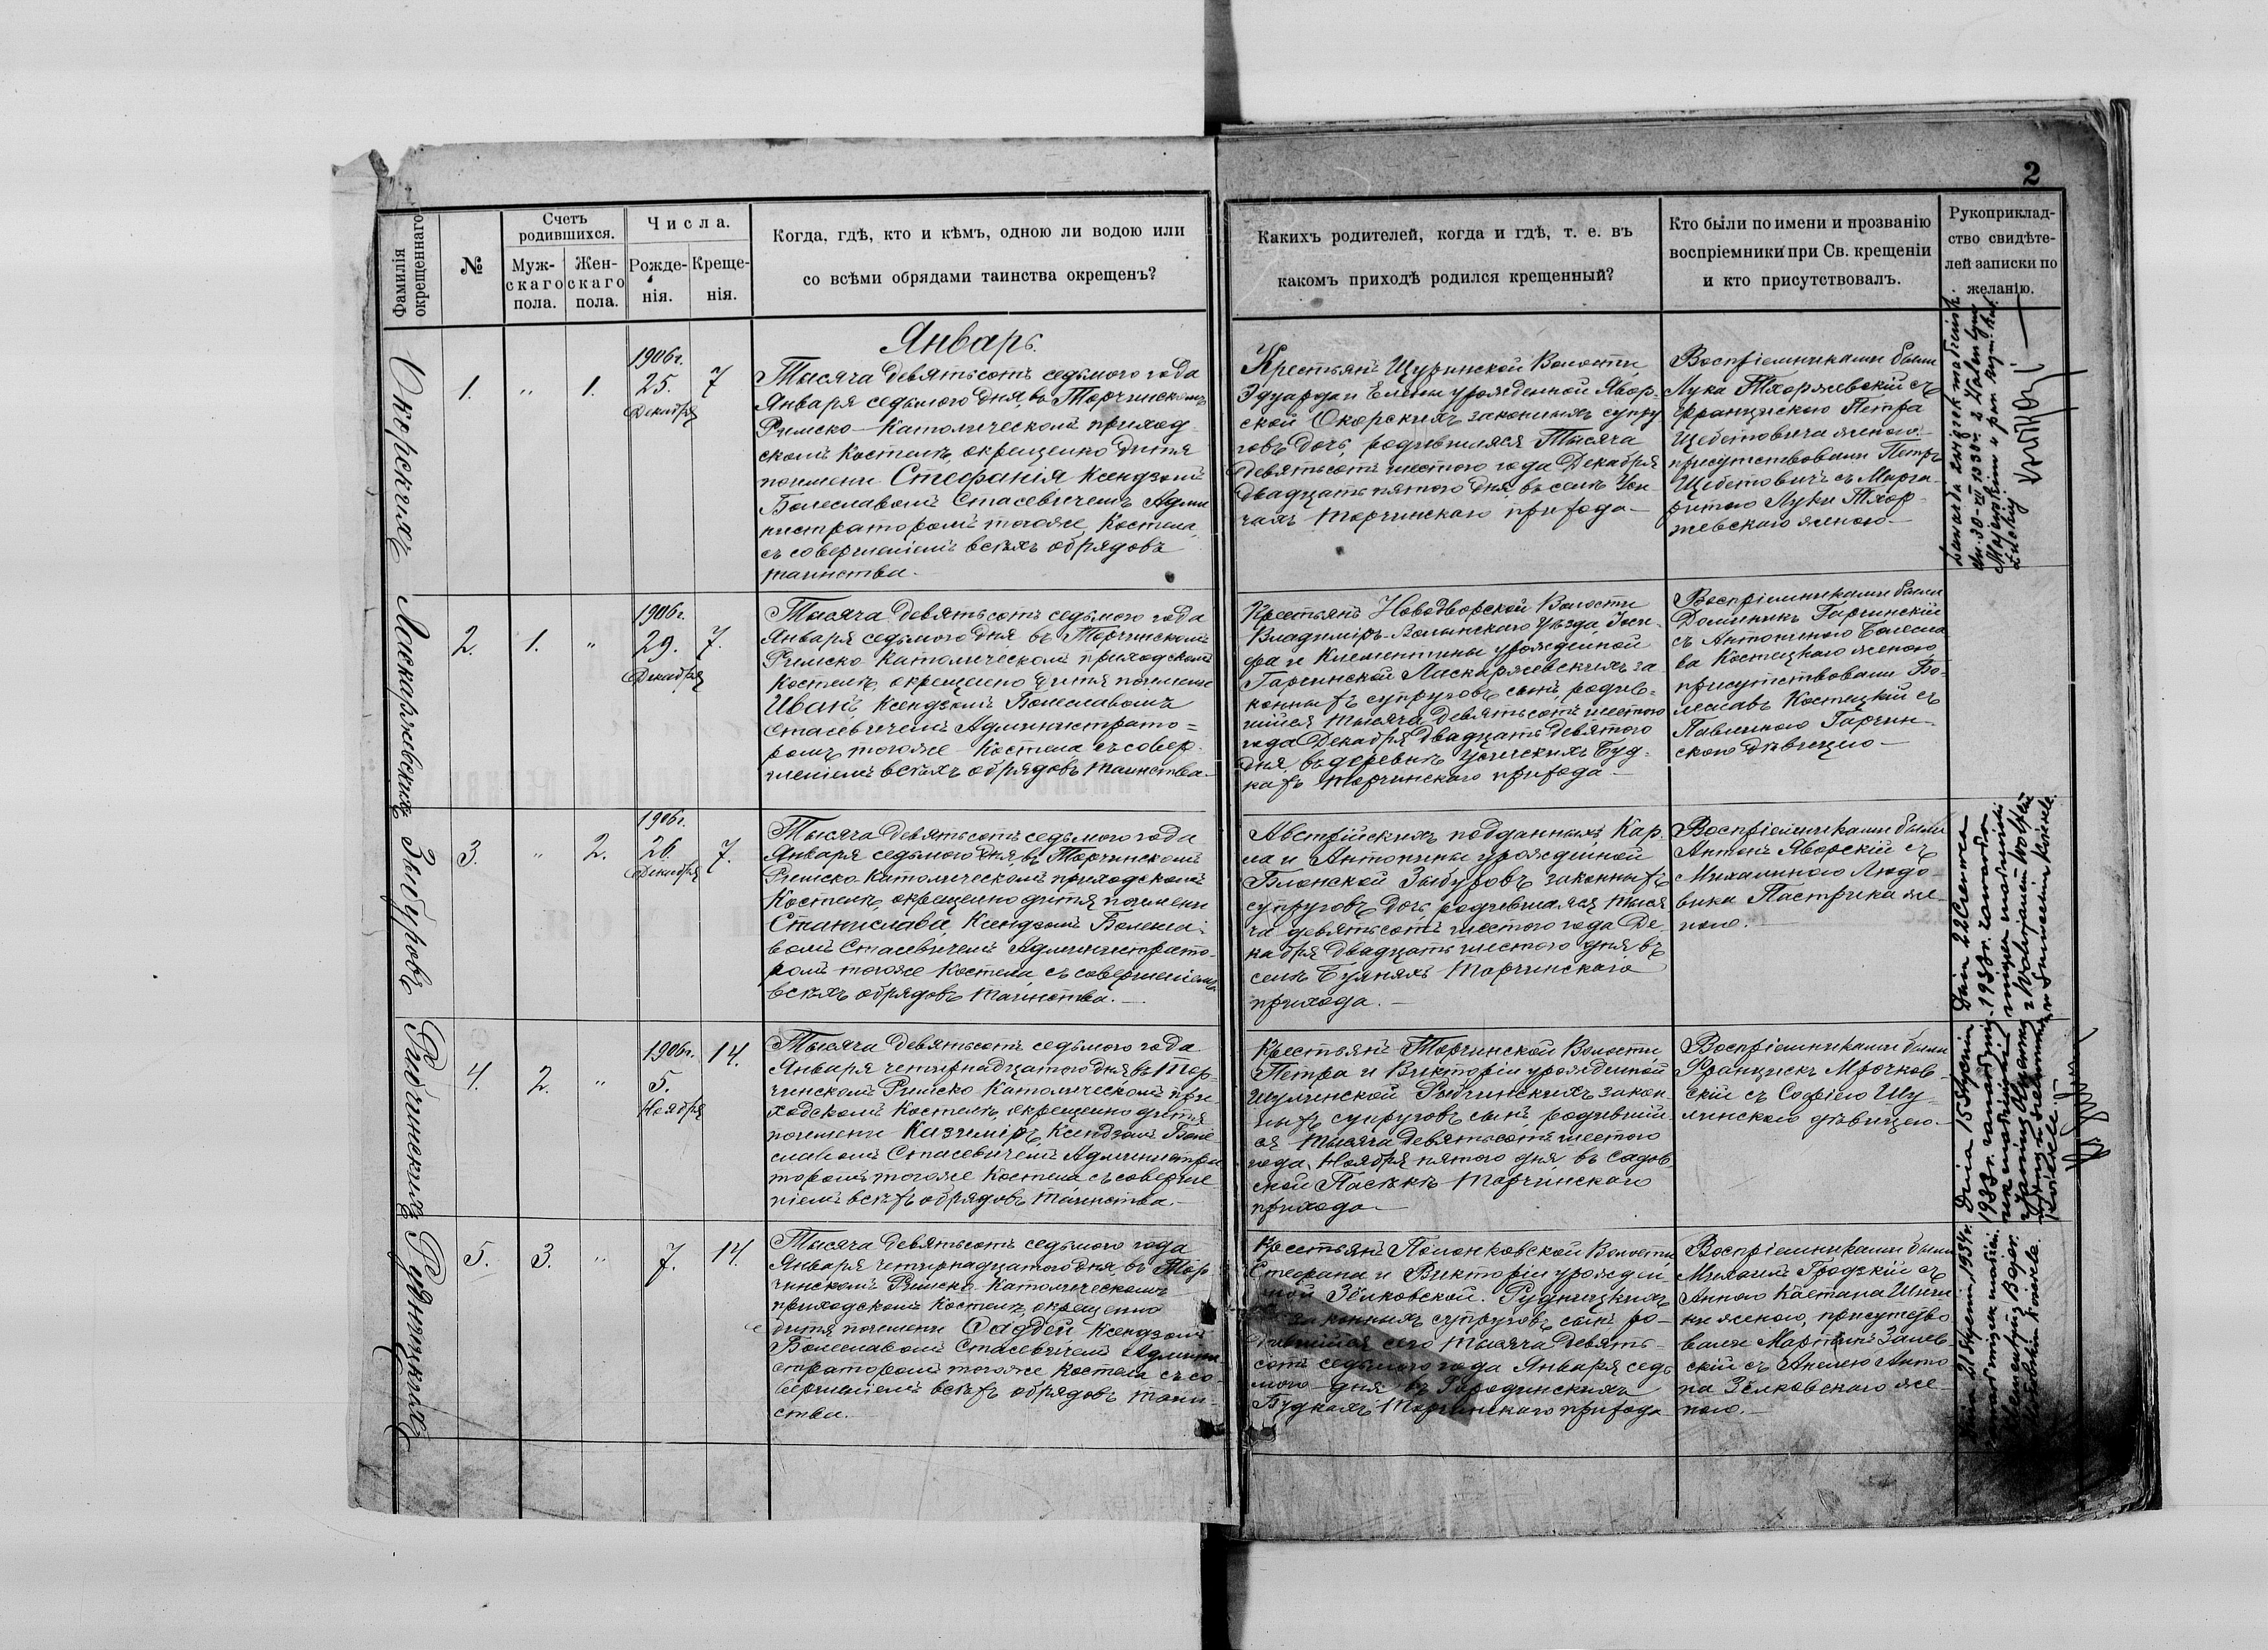 2
Фамилія
окрещеннаго
№
Счетъ
родившихся.
Муж-
скаго
пола.
Жен-
скаго
пола.
Числа.
Рожде-
нія.
Креще-
нія.
Когда, гдѣ, кто и кѣмъ, одною ли водою или
со всѣми обрядами таинства окрещенъ?
Какихъ родителей, когда и гдѣ, т. е. въ
какомъ приходѣ родился крещенный?
Кто были по имени и прозванію
воспріемники при Св. крещеніи
и кто присутствовалъ.
Рукоприклад-
ство свидѣте-
лей записки по
желанію.
Январь.
Окорскихъ
1.
"
1.
1906г.
25.
Декабря
7
Тысяча девятьсотъ седьмого года
Января седьмого дня, въ Торчинскомъ
Римско-Католическомъ приход-
скомъ Костелѣ, окрещено дитя
поимени Стефанія Ксендзомъ
Болеславомъ Стасевичемъ Адми
нистраторомъ тогоже Костела,
съ совершеніемъ всѣхъ обрядовъ
таинства.
Крестьянъ Щуринской Волости
Эдуарда и Елены урожденной Явор-
ской Окорскихъ законныхъ супру
говъ дочь, родившаяся Тысяча
девятьсотъ шестого года Декабря
двадцать пятого дня въ селѣ
Торчинскаго прихода-
Воспріемниками были
Лука Тхоржевскій съ
Францискою Петра
Щебетовича женою.
присутствовали Петръ
Щебетовичъ съ Марга-
ритою Луки Тхор-
жевскаго женою-
Ласкаржевскихъ
2.
1.
"
1906г.
29.
Декабря
7.
Тысяча девятьсотъ седьмого года
Января седьмого дня въ Торчинскомъ
Римско Католическомъ приходскомъ
Костелѣ, окрещено дитя поимени
Иванъ Ксендзомъ Болеславомъ
Стасевичемъ Администрато=
ромъ тогоже Костела съ совер-
шеніемъ всѣхъ обрядовъ таинства.
Крестьянъ Новодворской Волости
Владиміръ-Волынскаго уѣзда, Іоси-
фа и Клементины урожденной
Гарчинской Ласкаржевскихъ за
конныхъ супруговъ сынъ, родив=
шійся тысяча девятьсотъ шестого
года Декабря двадцать девятого
дня, въ деревнѣ Усичскихъ Буд-
кахъ Торчинскаго прихода-
Воспріемниками были
Доминикъ Гарчинскій
съ Антониною Болесла
ва Костецкаго женою,
присутствовали Бо-
леславъ Костецкій съ
Павлиною Гарчин-
скою дѣвицею-
Зыбуровъ
3.
"
2.
1906г.
26.
Декабря
7.
Тысяча девятьсотъ седьмого года
Января седьмого дня, въ Торчинскомъ
Римско Католическомъ приходскомъ
Костелѣ, окрещено дитя поимени
Станислава, Ксендзомъ Болесла-
вомъ Стасевичемъ Администрато-
ромъ тогоже Костела, съ совершеніемъ
всѣхъ обрядовъ таинства.-
Австрійскихъ подданныхъ Кар-
ла и Антонины урожденной
Блонской Зыбуровъ законныхъ
супруговъ дочь родившаяся тыся
ча девятьсотъ шестого года Де
кабря двадцать шестого дня въ
селѣ Буянахъ Торчинскаго
прихода.-
Воспріемниками были
Антонъ Яворскій съ
Михалиною Людо-
вика Пастрика же-
ною.-
Рыбчинскихъ
4.
2.
"
1906г.
5.
Ноября
14.
Тысяча девятьсотъ седьмого года
Января четырнадцатого дня въ Тор-
чинскомъ Римско Католическомъ при-
ходскомъ Костелѣ окрещено дитя
поимени Казиміръ, Ксендзомъ Боле-
славомъ Стасевичемъ Администра
торомъ тогоже Костела съ соверше
ніемъ всѣхъ обрядовъ таинства.-
Крестьянъ Торчинской Волости
Петра и Викторіи урожденной
Шулинской Рыбчинскихъ закон-
ныхъ супруговъ сынъ, родившій-
ся тысяча девятьсотъ шестого
года, Ноября пятого дня, въ Садов-
ской Пасѣкѣ Торчинскаго
прихода-
Воспріемниками были
Францискъ Мрочков-
скій съ Софіею Шу-
линскою дѣвицею.-
Рудницкихъ
5.
3.
"
7.
14.
Тысяча девятьсотъ седьмого года
Января четырнадцатого дня въ Тор
чинскомъ Римско Католическомъ
приходскомъ Костелѣ, окрещено
дитя поимени Ѳаддей Ксендзомъ
Болеславомъ Стасевичемъ Админи-
страторомъ тогоже Костела съ со-
вершеніемъ всѣхъ обрядовъ таин-
ства.-
Крестьянъ Полонковской Волости,
Стефана и Викторіи урожден-
ной Зелковской. Рудницкихъ
законныхъ супруговъ сынъ ро-
дившійся сего тысяча девять-
сотъ седьмого года Января седь
мого дня въ Городинскихъ
Будкахъ Торчинскаго прихода
Воспріемниками были
Михаилъ Гродзкій съ
Анною Каетана
женою, присутство
вали Мартинъ
скій съ Анелею Анто
на Зелковскаго же-
ною.-
zawarła związek małżeński
dn. 30-XII 1930r. z Walentym
Łuckiej
Dnia 15 Stycznia
1933r.
Dnia 22 Czerwca
1938r. zawarła
związek małżeński
Dnia 21 Stycznia 1934r.
zawarł związek małżeń.
z Klementyną
w kościele